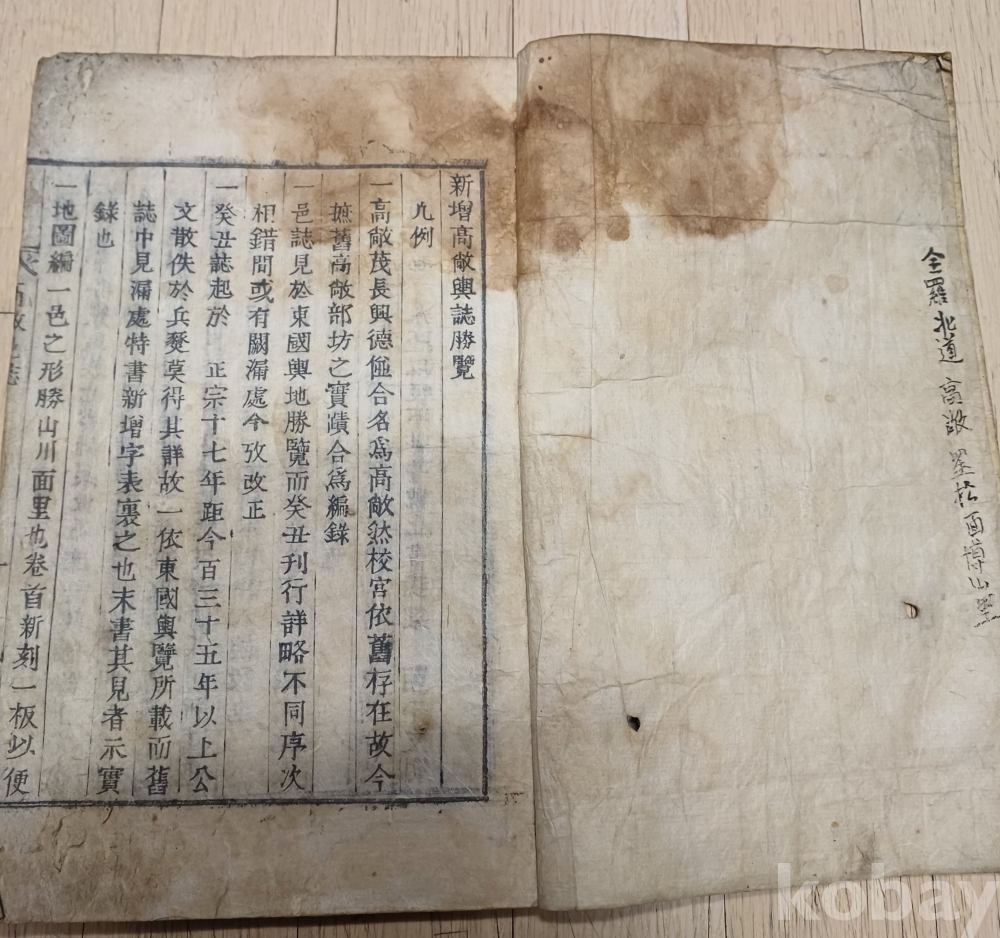 全羅北道 高敞 星松面
新增高敞輿誌勝覽
凡例
一高敞茂長興德倂合名爲高敞然校宮依舊存在故今
摭舊高敞部坊之實蹟合爲編錄
一邑誌見於東國輿地勝覽而癸丑刊行詳略不同序次
相錯間或有闕漏處今攷改正
一癸丑誌起於 正宗十七年距今百三十五年以上公
文散佚於兵燹莫得其詳故一依東國輿覽所載而舊
誌中見漏處特書新增字表裏之也末書其見者示實
錄也
一地圖編一邑之形勝山川面里也卷首新刻一板以便
kobay